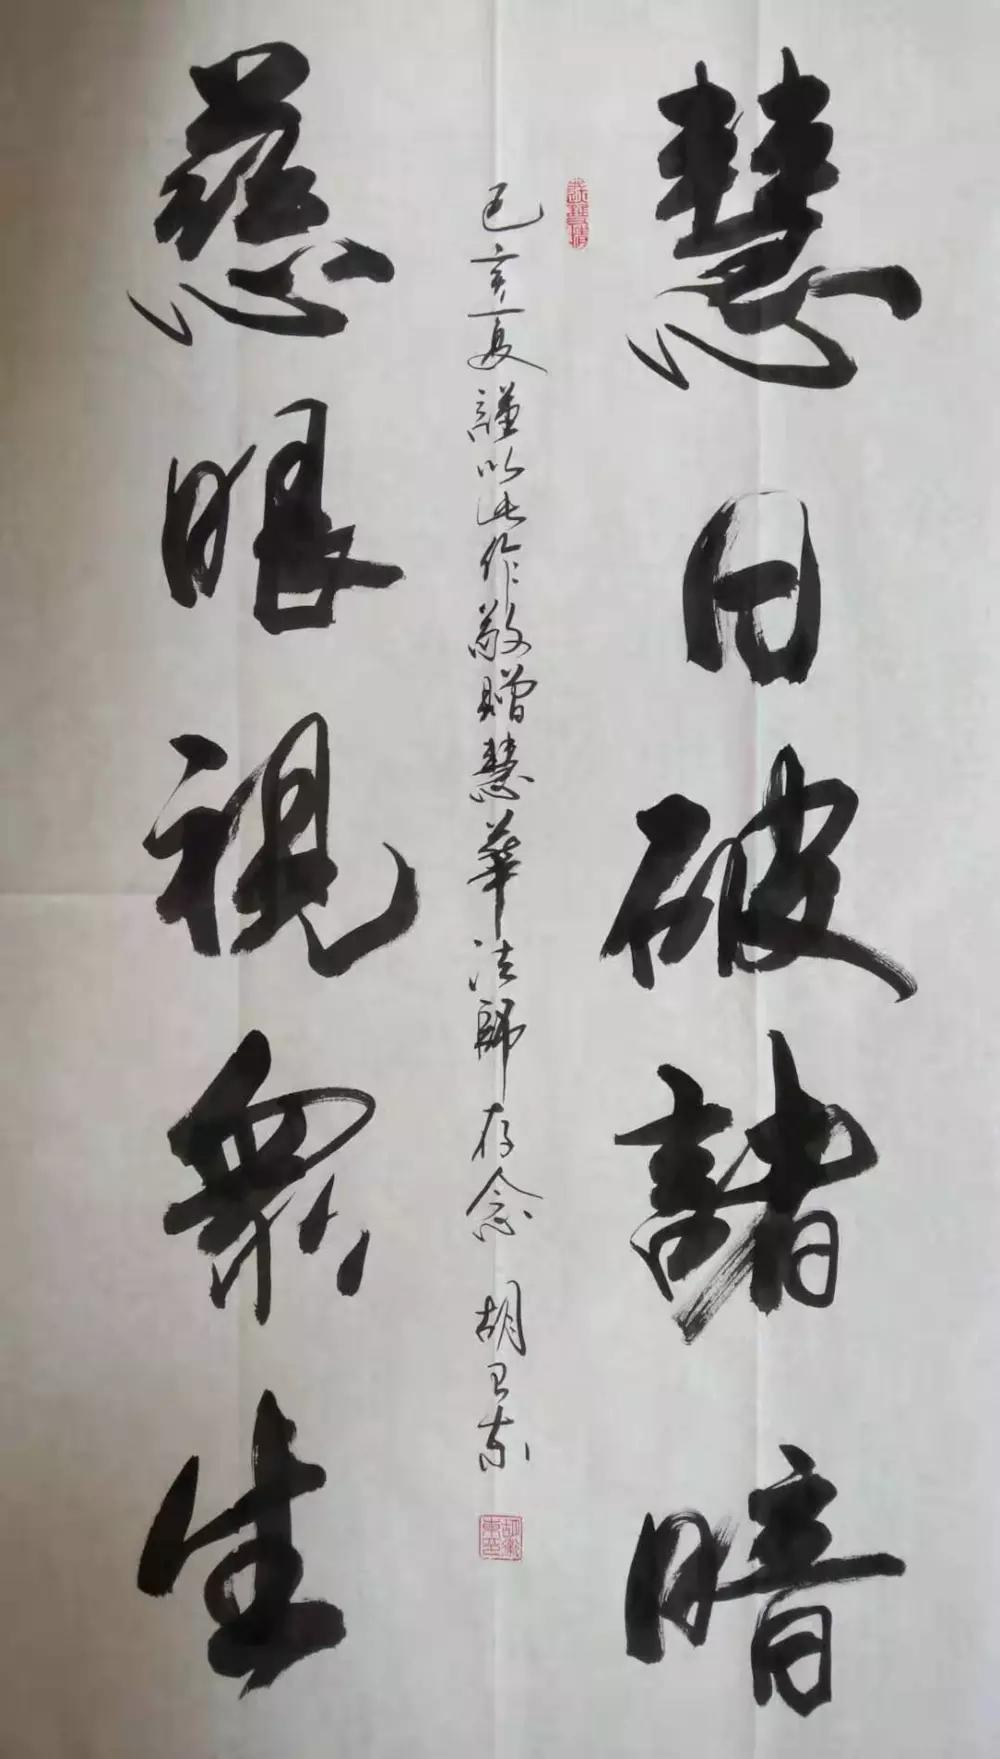 慧日破諸暗
己亥夏謹以此作敬贈慧華法師存念 胡卫东
慈眼視衆生